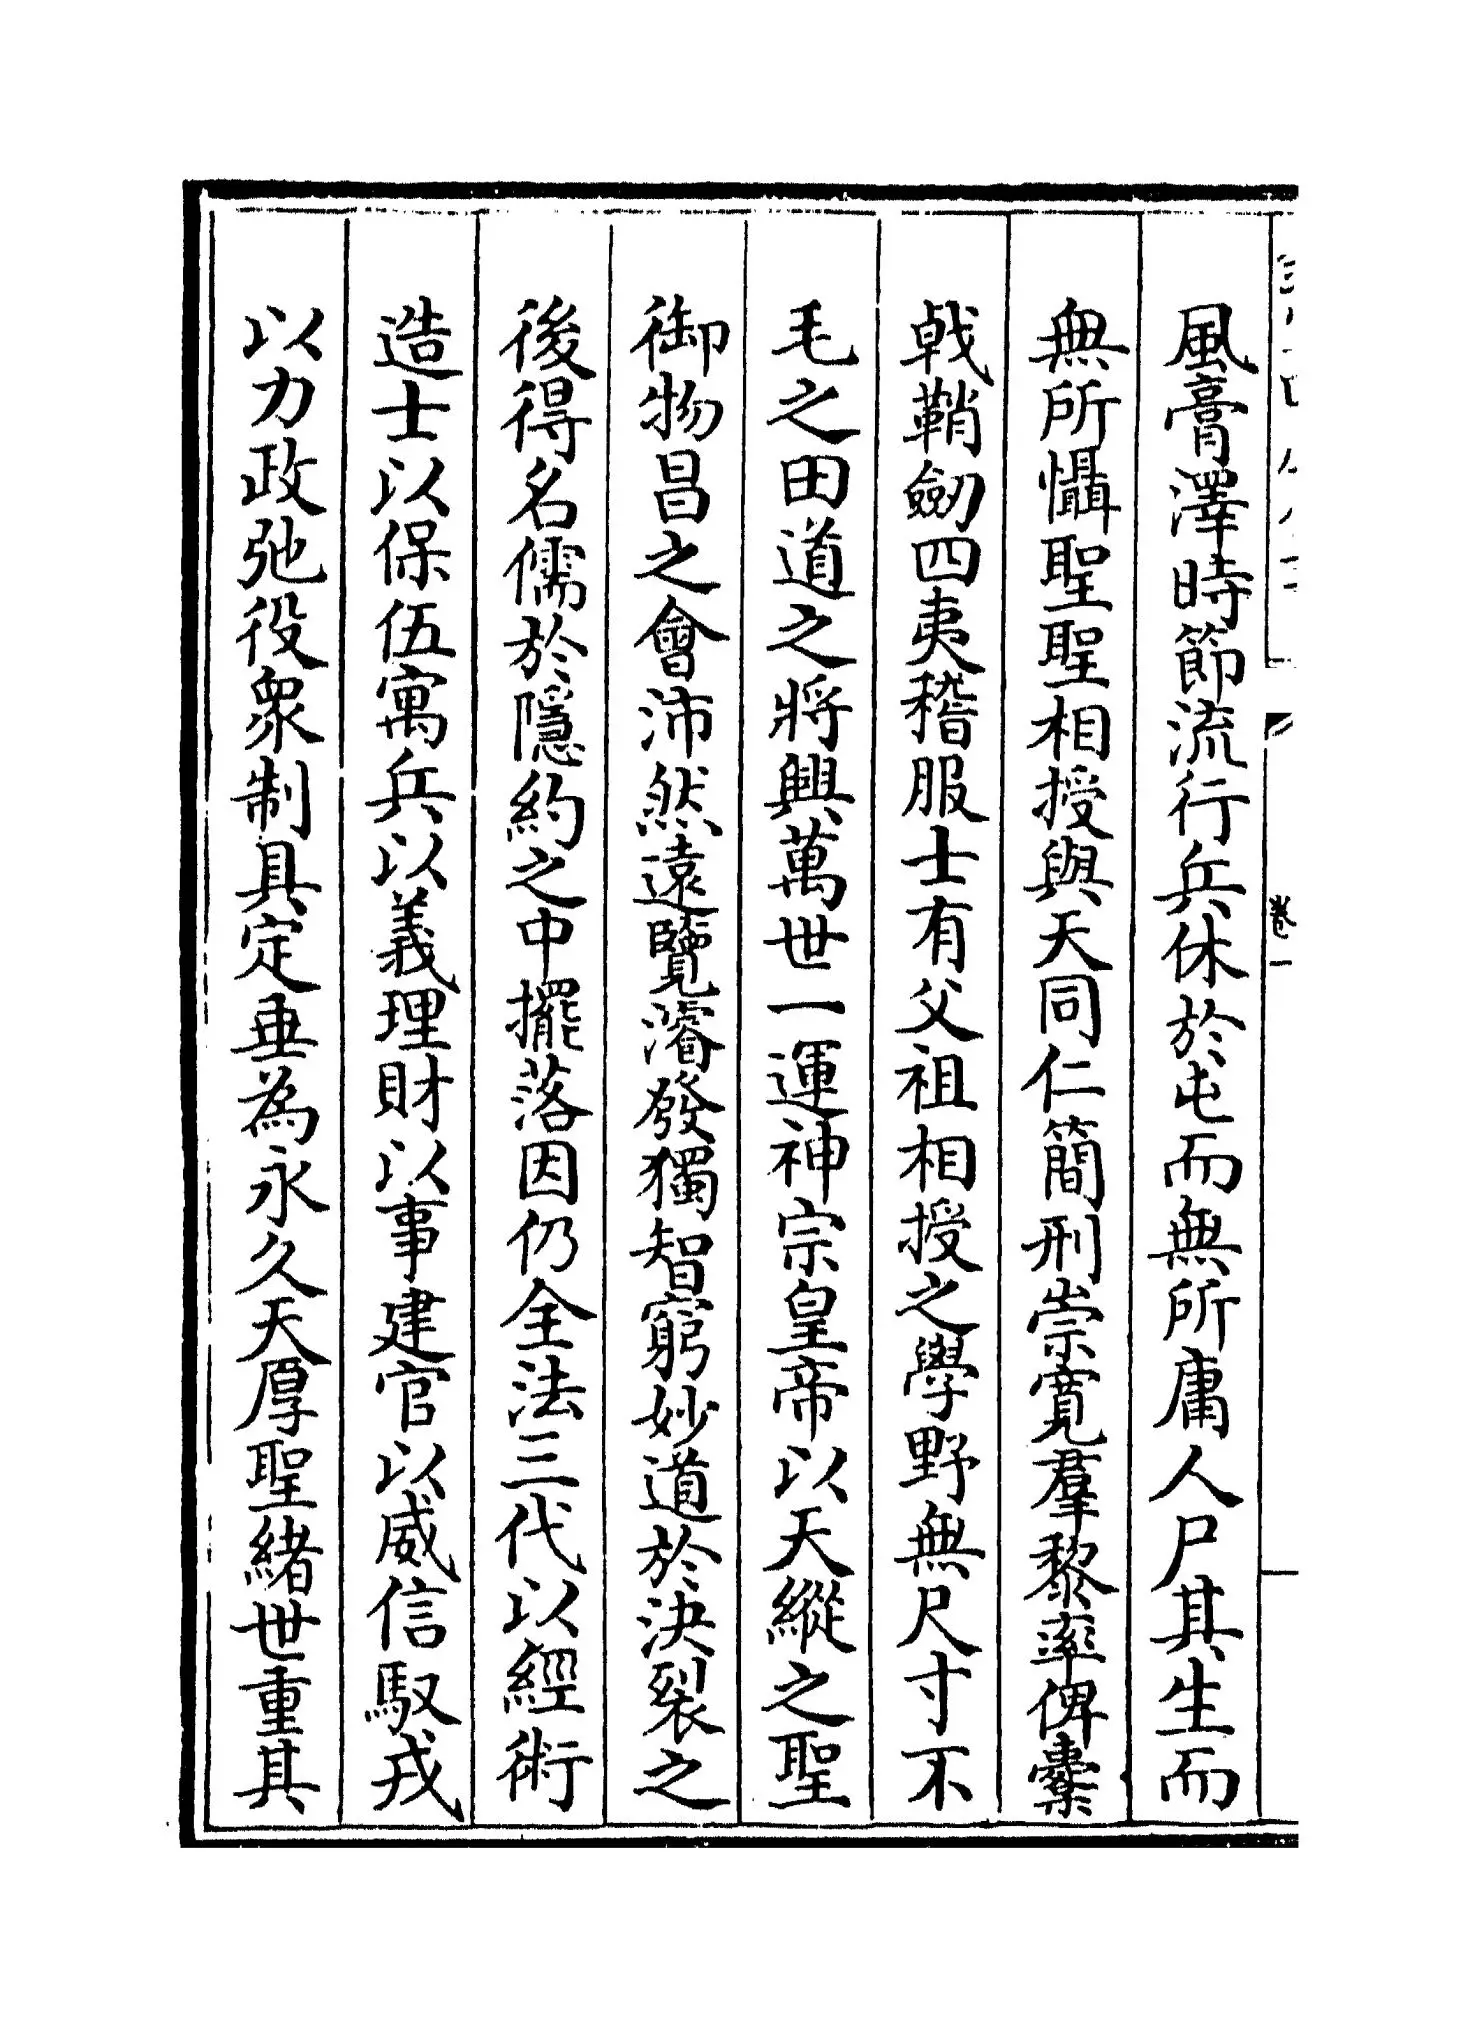 卷一
風膏澤時節流行兵休於屯而無所庸人尸其生而
無所懾聖聖相授與天同仁簡刑崇寛羣黎率俾櫜
戟鞘劒四夷稽服士有父祖相授之學野無尺寸不
毛之田道之將興萬世一運神宗皇帝以天縱之聖
御物昌之會沛然遠覽濬發獨智窮妙道於決裂之
後得名儒於隱約之中擺落因仍全法三代以經術
造士以保伍寓兵以義理財以事建官以威信馭戎
以力政弛役衆制具定垂為永久天厚聖緒世重其